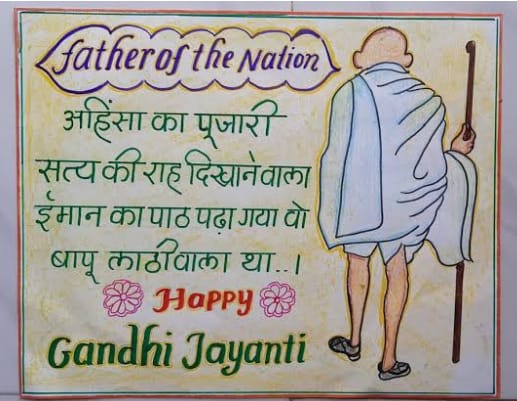 father of the Nation
अहिंसा का पूजारी
सत्य की राह दिखाने वाला
ईमान का पाठ पढ़ा गया वो
बापू लाठीवाला था..।
Happy
Gandhi Jayanti